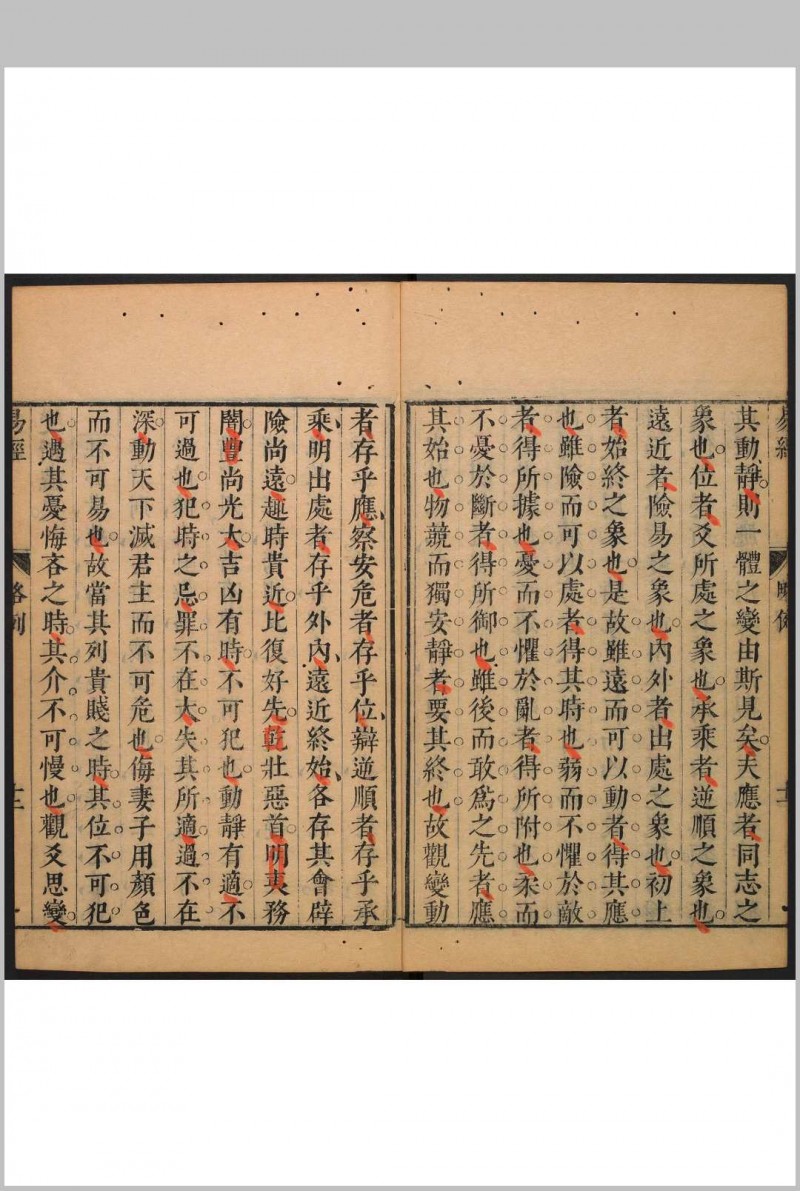 其動靜則一體之變由斯見矣夫應者同志之
象也位者爻所處之象也承乘者逆順之象也
遠近者險易之象也內外者出處之象也初上
者始終之象也是故雖遠而可以動者得其應
也雖險而可以處者得其時也弱而不懼於敵
者得所據也憂而不懼於亂者得所附也柔而
不憂於斷者得所御也雖後而敢爲之先者應
其始也物競而獨安靜者要其終也故觀變動
者存乎應察安危者存乎位辯逆順者存乎承
乘明出處者存乎外內遠近終始各存其會辟
險尚遠趣時貴近比復好先乾壯惡首明夷務
闇豐尚光大吉凶有時不可犯也動靜有適不
可過也犯時之忌罪不在大失其所適過不在
深動天下滅君主而不可危也侮妻子用顏色
而不可易也故當其列貴賤之時其位不可犯
也遇其憂悔吝之時其介不可慢也觀爻思變
易經
略例